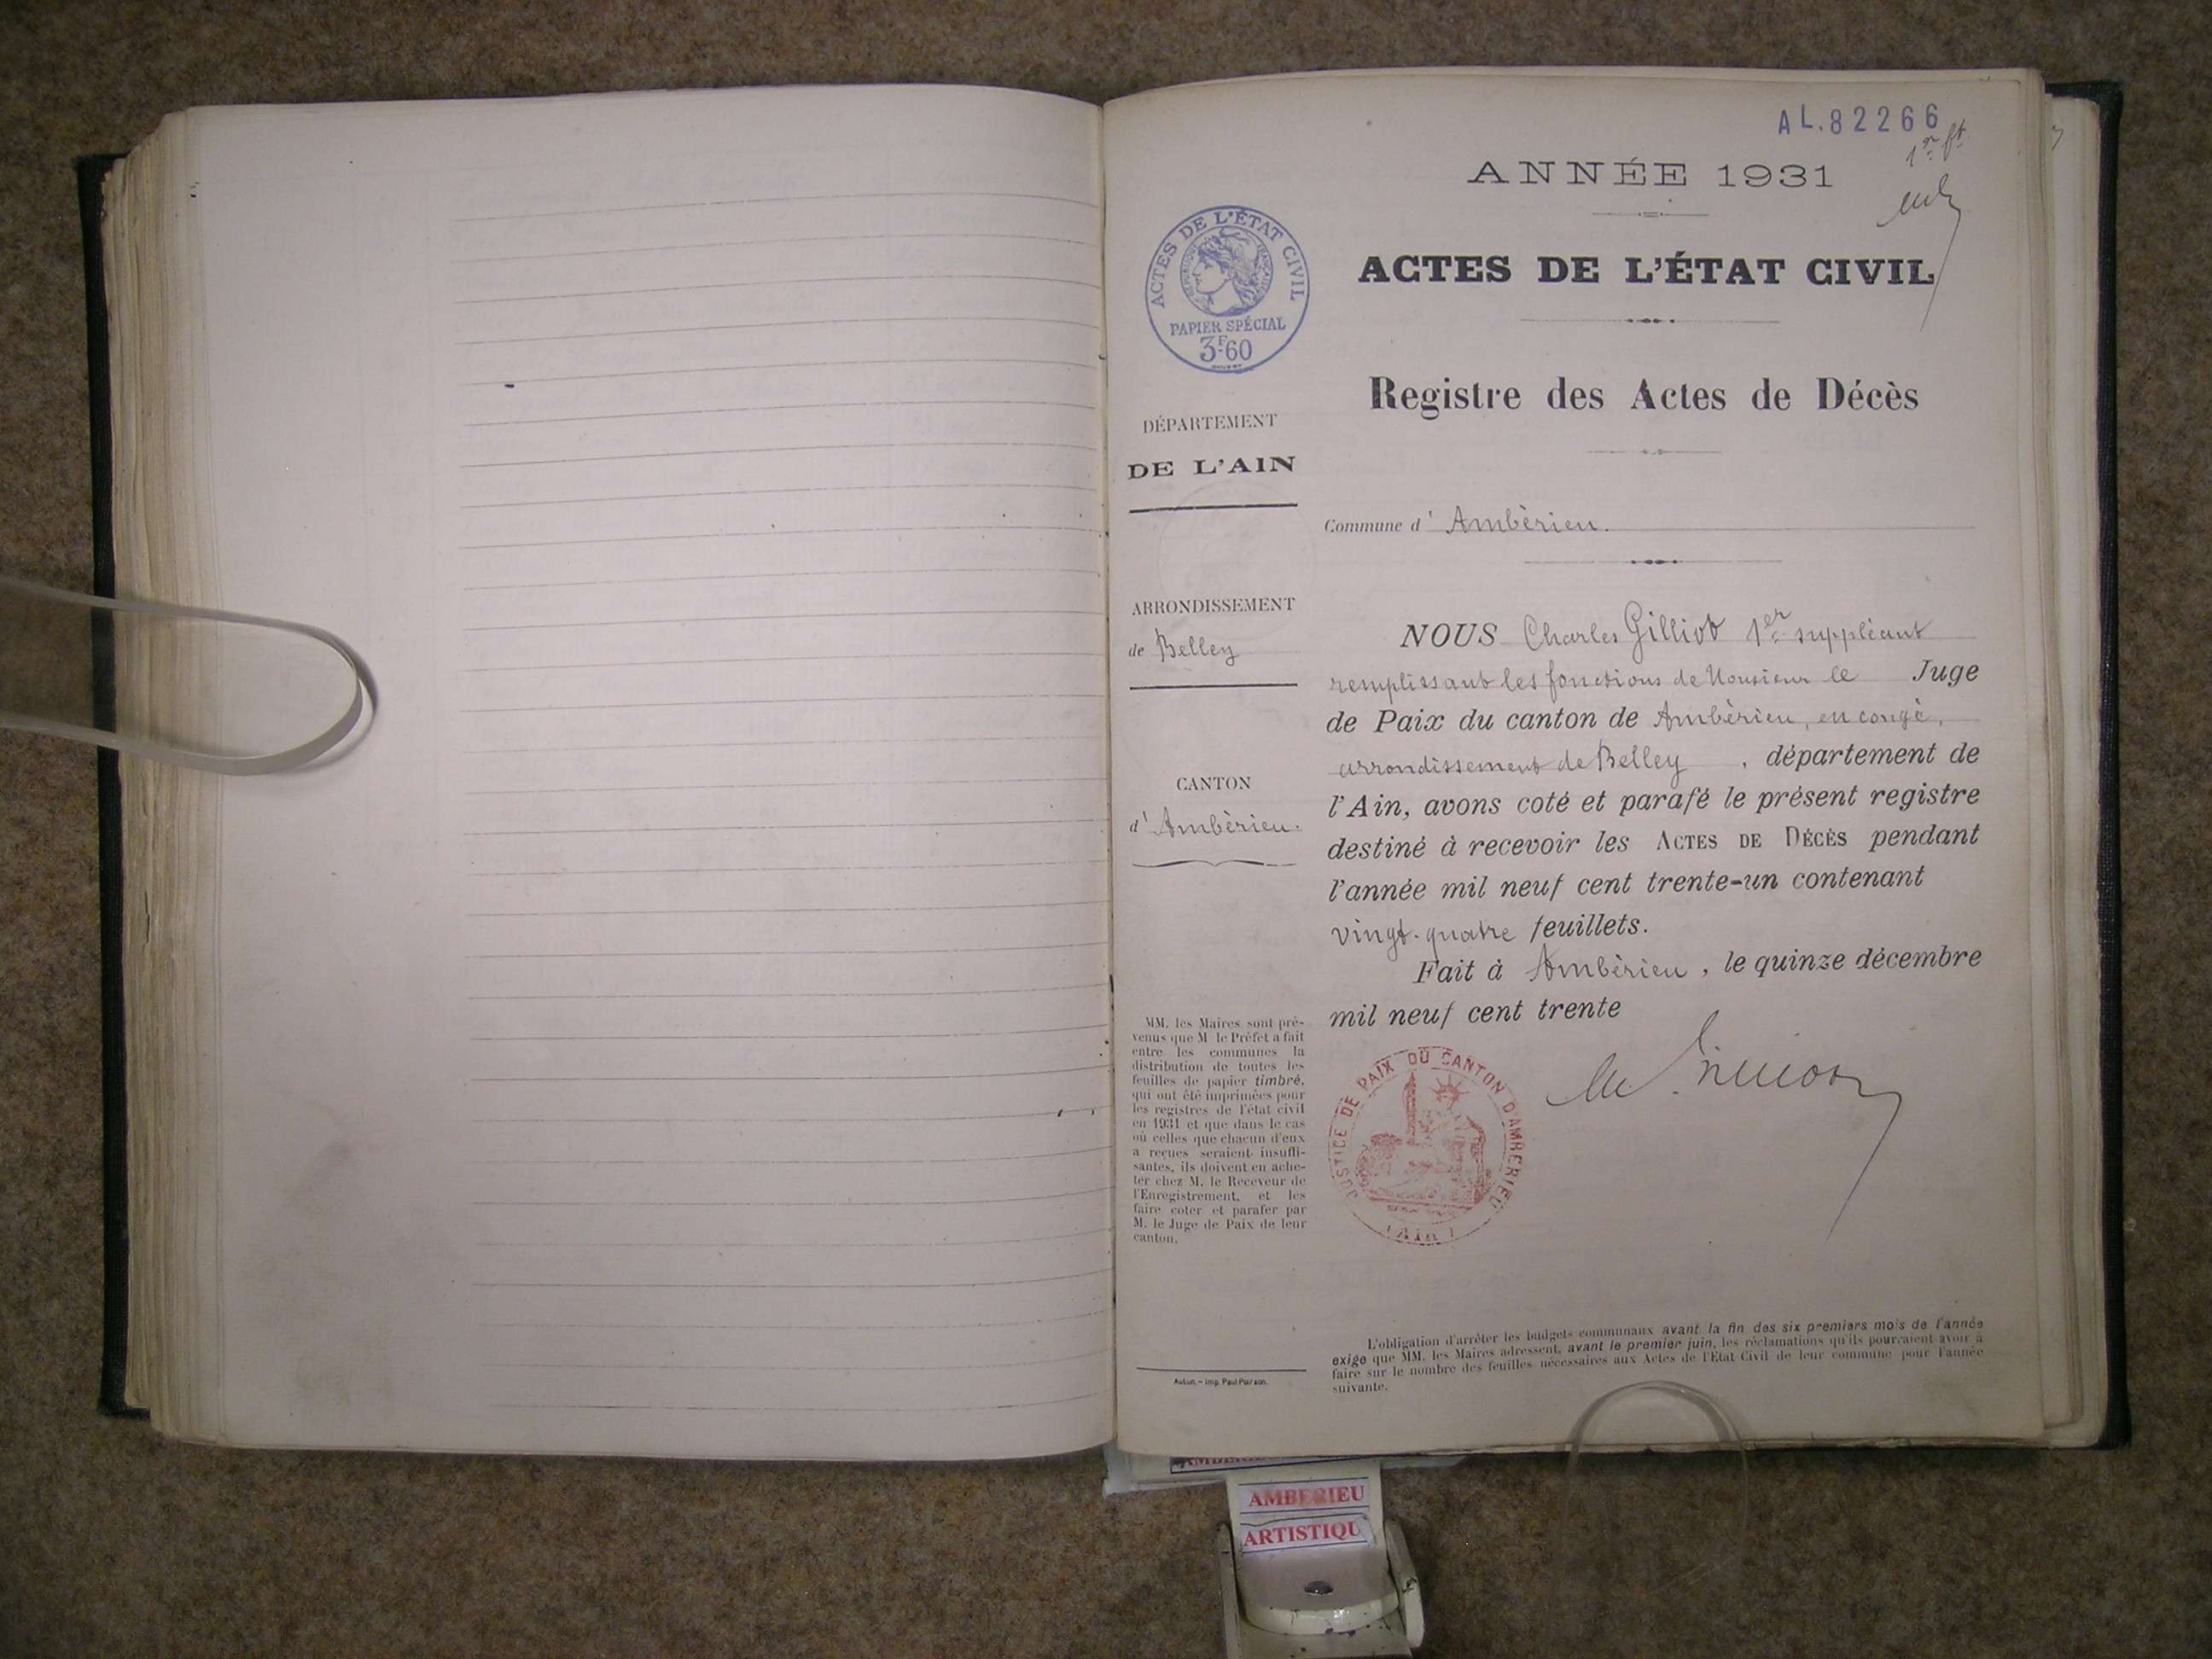 AL.82266
1er ft
ANNÉE 1931
ACTES DE L'ÉTAT CIVIL
RÉPUBLIQUE FRANÇAISE
PAPIER SPÉCIAL
3F.60
ACTES DE L'ÉTAT CIVIL
Registre des Actes de Décès
DÉPARTEMENT
DE L'AIN
Commune d' Ambèrieu.
ARRONDISSEMENT
de Belley
CANTON
d' Ambèrieu.
NOUS Charles Gilliot 1er suppléant
remplissant les fonctions de Monsieur le Juge
de Paix du canton de Ambèrieu, en congé,
arrondissement de Belley , département de
l'Ain, avons coté et parafé le présent registre
destiné à recevoir les ACTES DE DÉCÈS pendant
l'année mil neuf cent trente-un contenant
vingt-quatre feuillets.
Fait à Ambèrieu, le quinze décembre
mil neuf cent trente
MM. les Maires sont pré-
venus que M le Préfet a fait
entre les communes la
distribution de toutes les
feuilles de papier timbré,
qui ont été imprimées pour
les registres de l'état civil
en 1931 et que dans le cas
où celles que chacun d'eux
a reçues seraient insuffi-
santes, ils doivent en ache-
ter chez M. le Receveur de
l'Enregistrement, et les
faire coter et parafer par
M. le Juge de Paix de leur
canton.
JUSTICE DE PAIX DU CANTON D'AMBERIEU
(AIN)
L'obligation d'arrêter les budgets communaux avant la fin des six premiers mois de l'année
exige que MM. les Maires adressent, avant le premier juin, les réclamations qu'ils pourraient avoir à
faire sur le nombre des feuilles nécessaires aux Actes de l'Etat Civil de leur commune pour l'année
suivante.
Autun. – Imp. Paul Poirson.
AMBERIEU
ARTISTIQU